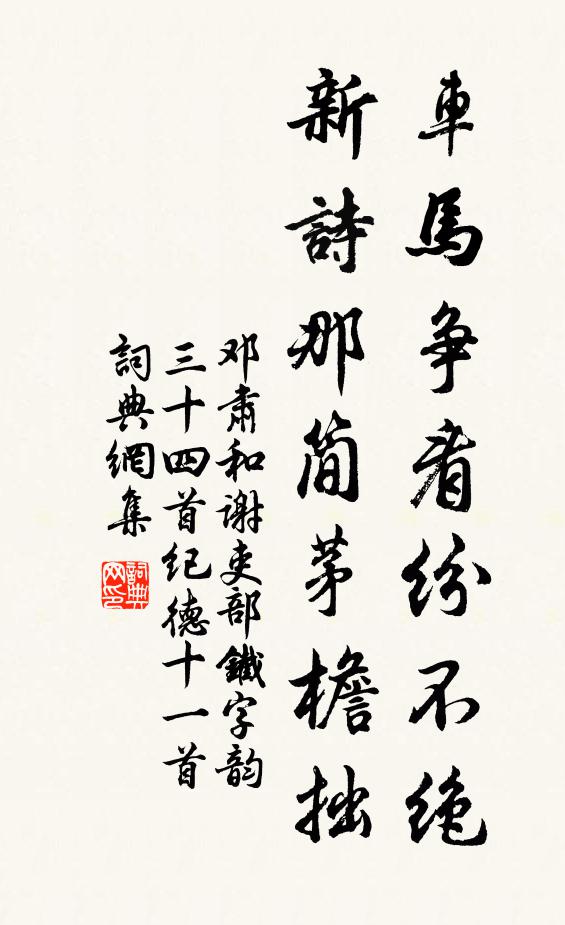 車馬争看紛不绝
新詩那简茅檐拙
邓肅和谢吏部鐵字韵
三十四首纪德十一首
詞典網集
詞典网印